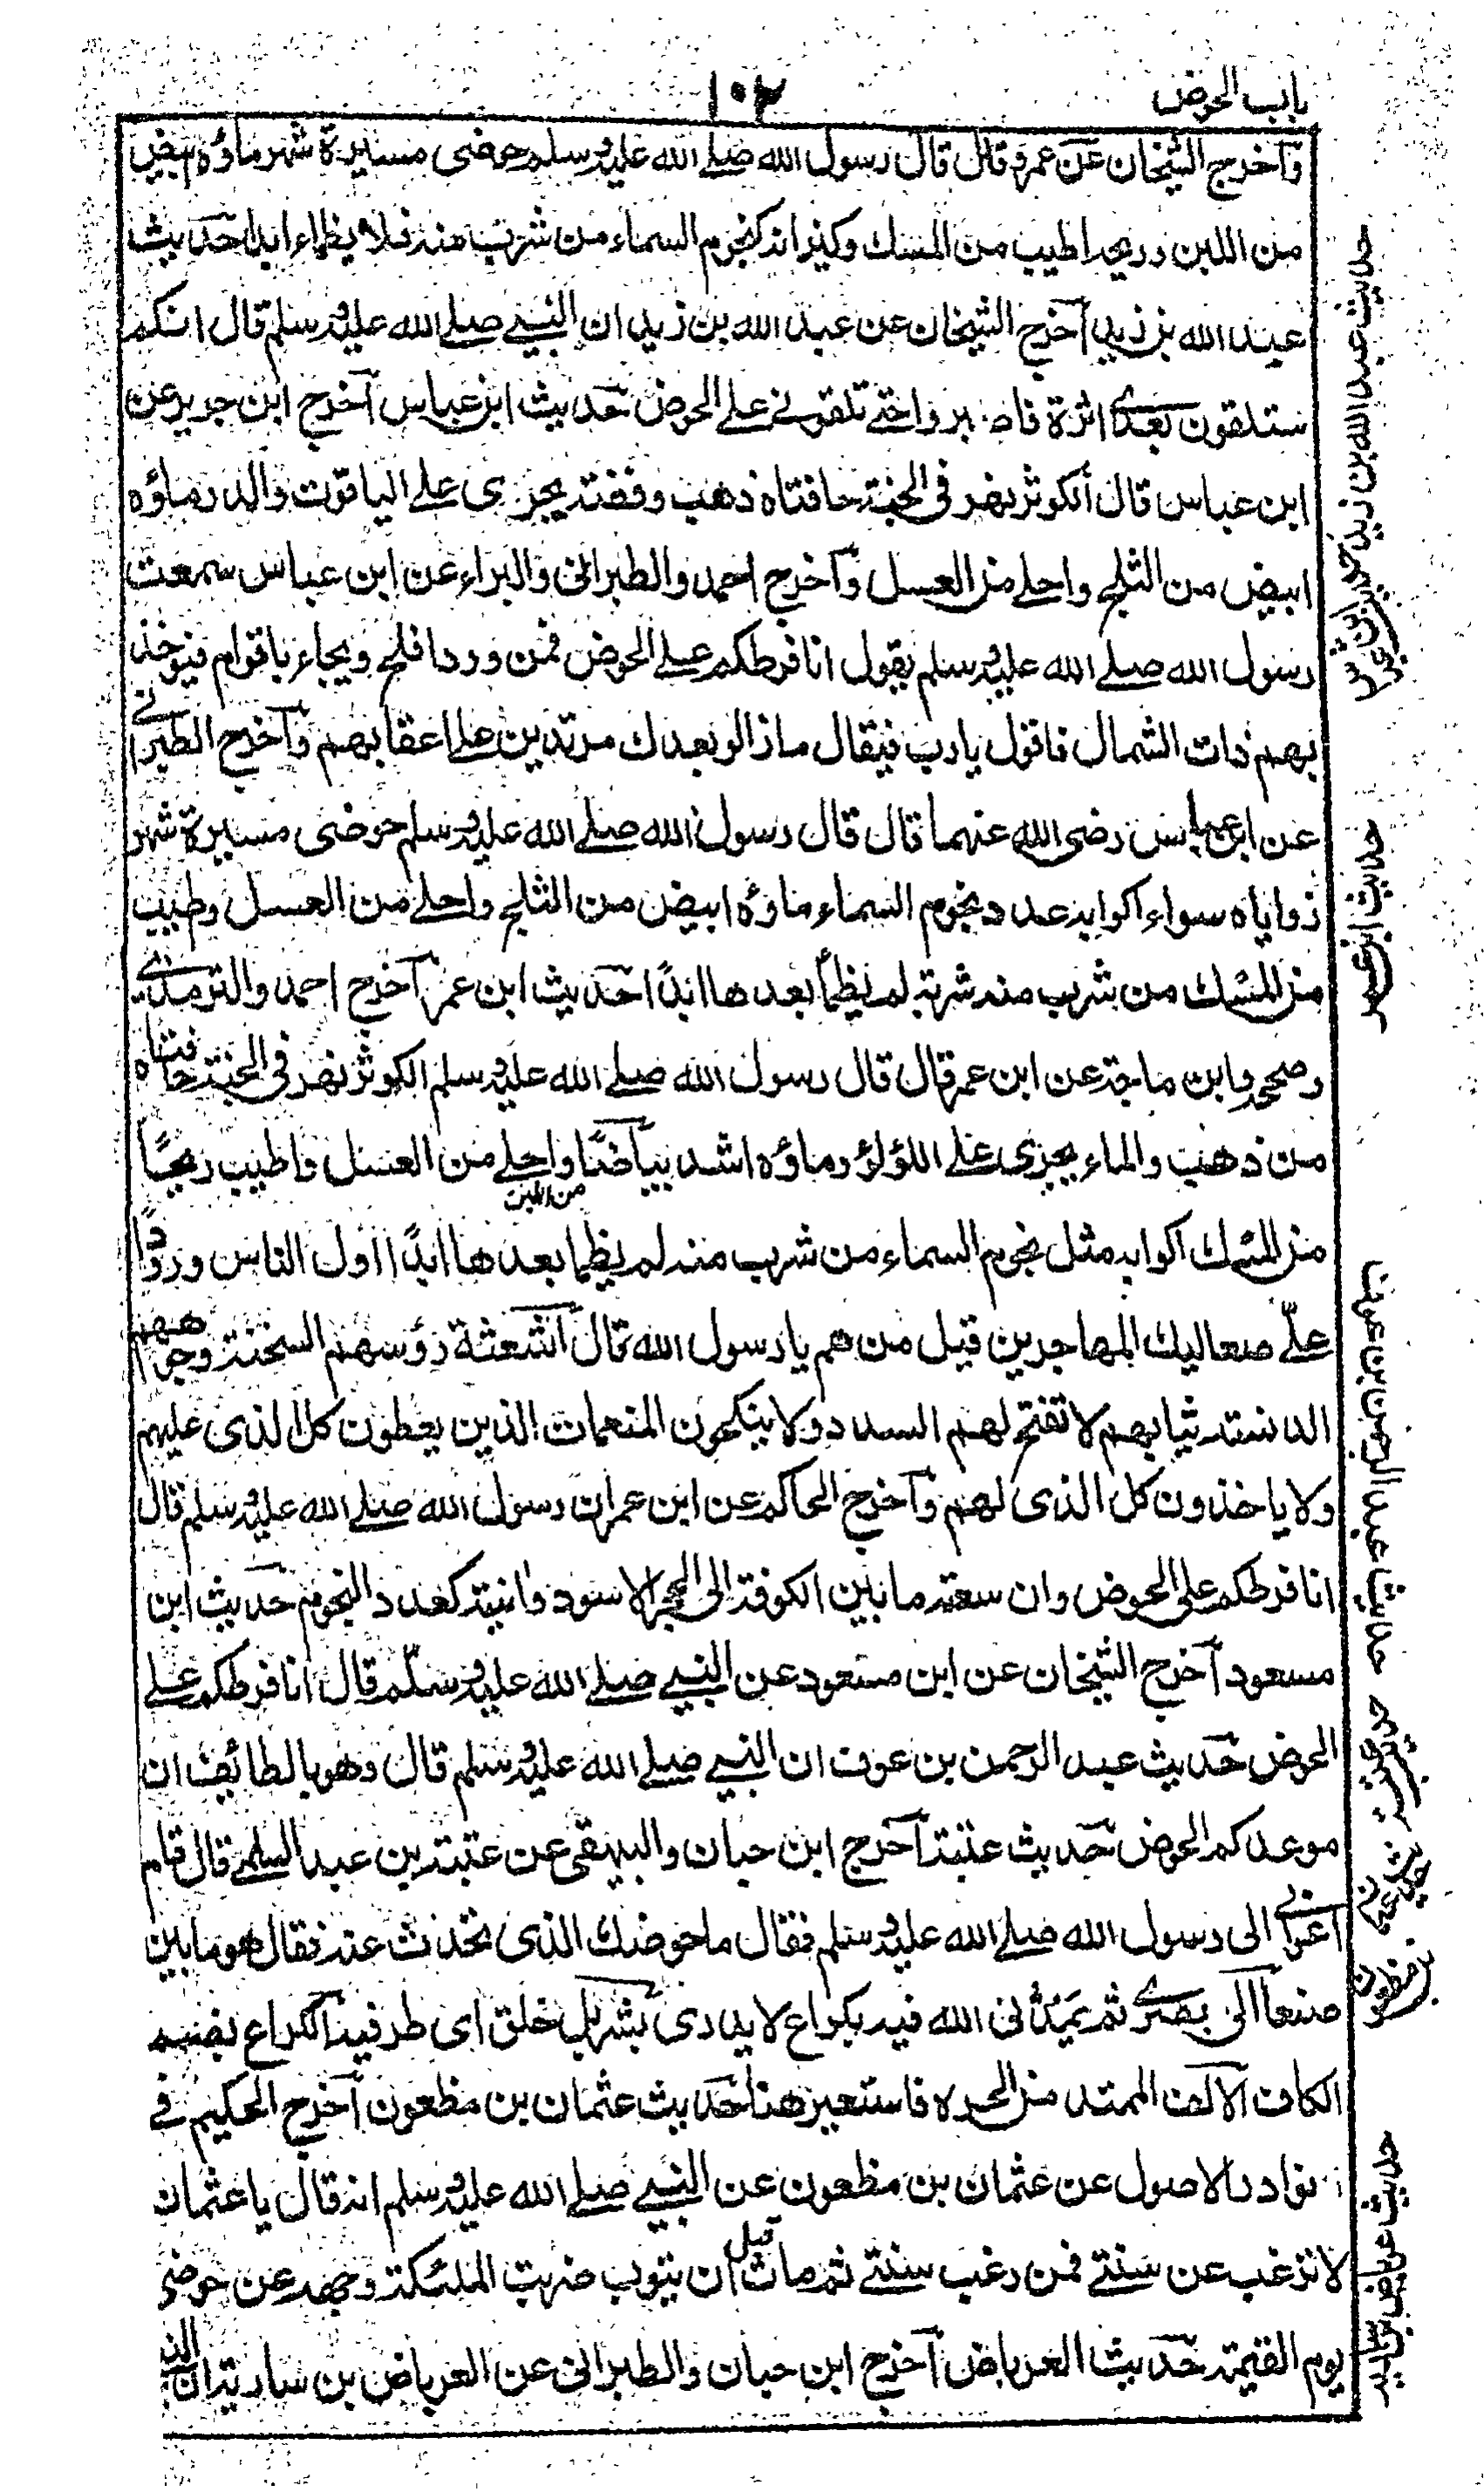 باب الحوض
١٠٢
وآخرج الشيخان عن عمرو قال قال رسول الله صلى الله عليه وسلم حوضى مسيرة شهر ماؤه ابيض
من اللبن وريحه اطيب من المسك وكيزانه كنجوم السماء من شرب منه فلا يظماء ابدا حديث
عبد الله بن زيد آخرج الشيخان عن عبد الله بن زيد ان النبي صلى الله عليه وسلم قال انكم
ستلقون بعدى اثرة فاصبروا حتى تلقونى على الحوض حديث ابن عباس آخرج ابن جرير عن
ابن عباس قال الكوثر نهر فى الجنة حافتاه ذهب وفضة يجرى على الياقوت والدر ماؤه
ابيض من الثلج واحلى من العسل وآخرج احمد والطبرانى والبزاء عن ابن عباس سمعت
رسول الله صلى الله عليه وسلم يقول انا فرطكم على الحوض فمن ورد افلح ويجاء باقوام فيوخذ
بهم ذات الشمال فاقول يا رب فيقال ما زالو بعدك مرتدين على اعقابهم وآخرج الطبرانى
عن ابن عباس رضى الله عنهما قال قال رسول الله صلى الله عليه وسلم حوضى مسيرة شهر
زواياه سواء اكوابه عدد نجوم السماء ماؤه ابيض من الثلج واحلى من العسل وطيب
من المسك من شرب منه شربة لم يظمأ بعدها ابدًا حديث ابن عمر آخرج احمد والترمذى
وصححه وابن ماجة عن ابن عمر قال قال رسول الله صلى الله عليه وسلم الكوثر نهر فى الجنة حافتاه
من ذهب والماء يجرى على اللؤلؤ وماؤه اشد بياضًا من اللبن واحلى من العسل واطيب ريحًا
من المسك اكوابه مثل نجوم السماء من شرب منه لم يظما بعدها ابدًا اول الناس ورودًا
علىّ صعاليك المهاجرين قيل من هم يا رسول الله قال الشعثة رؤسهم السخنة وجوههم
الدنسة ثيابهم لا تفتح لهم السدد ولا ينكحون المنعمات الذين يعطون كل الذى عليهم
ولا ياخذون كل الذى لهم وآخرج الحاكم عن ابن عمر ان رسول الله صلى الله عليه وسلم قال
انا فرطكم على الحوض وان سعته ما بين الكوفة الى الحجر الاسود وانيته كعدد النجوم حديث ابن
مسعود آخرج الشيخان عن ابن مسعود عن النبي صلى الله عليه وسلم قال انا فرطكم على
الحوض حديث عبد الرحمن بن عوف ان النبي صلى الله عليه وسلم قال وهو بالطائف ان
موعدكم الحوض حديث عتبة آخرج ابن حبان والبيهقى عن عتبة بن عبد السلمى قال قام
اعرابى الى رسول الله صلى الله عليه وسلم فقال ما حوضك الذى تحدث عنه فقال هو ما بين
صنعا الى بصرى ثم يمدنى الله فيه بكراع لا يدرى بشر بل خلق اى طرفيه الكراع بضم
الكاف الانف الممتد من الحره فاستعير هنا حديث عثمان بن مظعون آخرج الحكيم فى
نوادر الاصول عن عثمان بن مظعون عن النبي صلى الله عليه وسلم انه قال يا عثمان
لا ترغب عن سنتى فمن رغب سنتى ثم مات قبل ان يتوب ضربت الملئكة وجهه عن حوضى
يوم القيمة حديث العرباض آخرج ابن حبان والطبرانى عن العرباض بن سارية ان النبى
حديث عبد الله بن زيد
حديث ابن عباس
حديث ابن عمر
حديث عبد الرحمن بن عوف
بن مظعون